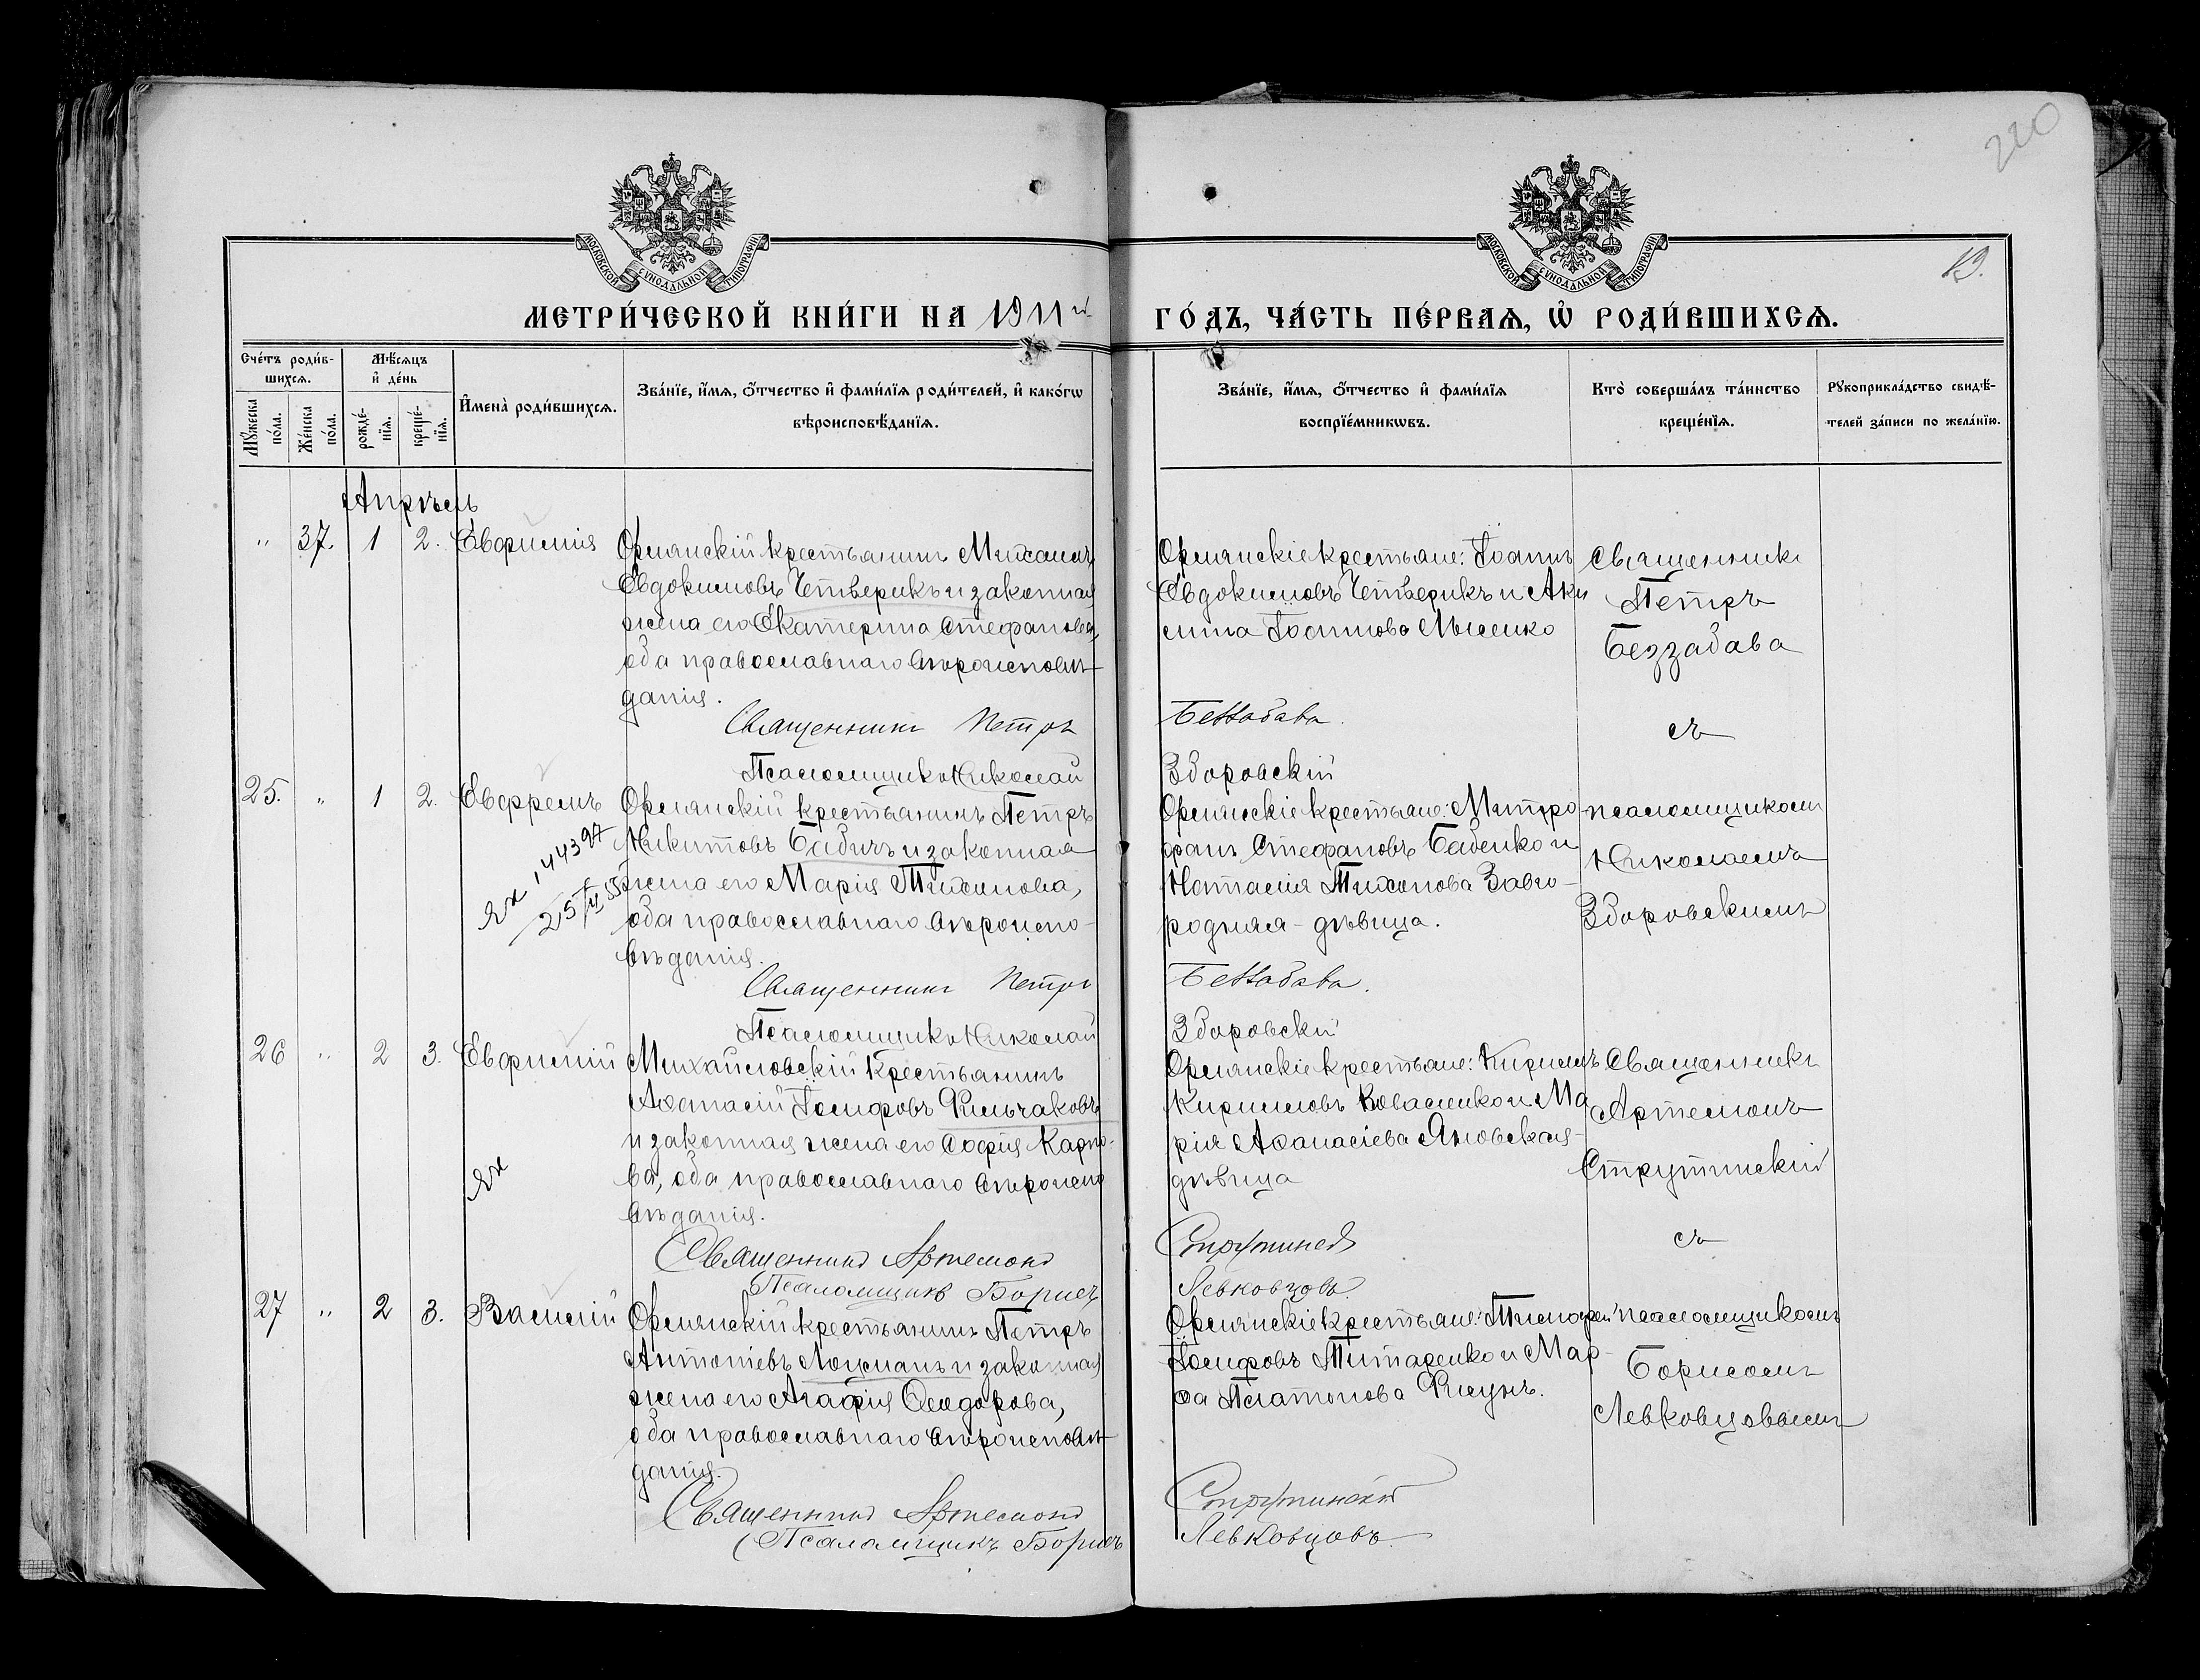 220
19.
МОСКОВСКОЙ СУНОДАЛЬНОЙ ТИПОГРАФІИ
МОСКОВСКОЙ СУНОДАЛЬНОЙ ТИПОГРАФІИ
МЕТРИ́ЧЕСКОЙ КНИ́ГИ НА 1911й
ГО́ДЪ, ЧА́СТЬ ПЕ́РВАѦ, Ѡ РОДИ́ВШИХСѦ.
Сче́тъ роди́в-
шихсѧ.
Мꙋ́жеска по́ла.
Же́нска по́ла.
Мѣ́сяцъ
и҆ де́нь
рожде́-
нїѧ.
креще́-
нїѧ.
И҆мена̀ роди́вшихсѧ.
Зва́нїе, и҆́мѧ, ѻ҆́тчество и҆ фами́лїѧ роди́телей, и҆ како́гѡ
вѣроисповѣ́данїѧ.
Зва́нїе, и҆́мѧ, ѻ҆́тчество и҆ фами́лїѧ
воспрїе́мникѡвъ.
Кто̀ соверша́лъ та́инство
креще́нїѧ.
Рꙋкоприкла́дство свидѣ́-
телей за́писи по жела́нїю.
Апрѣль
" 37. 1 2. Евфимія
Ормянскій крестьянинъ Михаилъ
Евдокимовъ Четверикъ и законная
жена его Екатерина Стефанова,
оба православнаго вѣроисповѣ-
данія.
Священникъ Петръ
Псаломщикъ Николай
Ормянскіе крестьяне: Іоаннъ
Евдокимовъ Четверикъ и Аки
лина Іоаннова Лысенко
Беззабава.
Здоровскій
Священникъ
Петръ
Беззабава
съ
25. " 1 2. Евфремъ
44397
25
Ормянскій крестьянинъ Петръ
Никитовъ Бабичъ и законная
жена его Марія Тихонова,
оба православнаго вѣроиспо-
вѣданія.
Священникъ Петръ
Псаломщикъ Николай
Ормянскіе крестьяне: Митро
фанъ Стефановъ Бабенко и
Наталія Тихонова Завго-
родняя - дѣвица.
Беззабава.
Здоровскій
псаломщикомъ
Николаемъ
Здоровскимъ
26 " 2 3. Евфимій
Михайловскій крестьянинъ
Аѳанасій Іосифовъ Фильчаковъ
и законная жена его Софія Карпо-
ва, оба православнаго вѣроиспо
вѣданія.
Священникъ Артемонъ
Псаломщикъ Борисъ
Ормянскіе крестьяне: Кириллъ
Кирилловъ Коваленко и Ма
рія Аѳанасіева Яновская-
дѣвица
Струтинскій
Левковцовъ.
Священникъ
Артемонъ
Струтинскій
съ
27 " 2 3. Василій
Ормянскій крестьянинъ Петръ
Антоніевъ Лоцманъ и законная
жена его Агафія Ѳеодорова,
оба православнаго вѣроисповѣ-
данія.
Священникъ Артемонъ
Псаломщикъ Борисъ
Ормянскіе крестьяне: Тимоѳей
Іосифовъ Титаренко и Мар-
ѳа Платонова Фисунъ.
Струтинскій
Левковцовъ.
псаломщикомъ
Борисомъ
Левковцовымъ